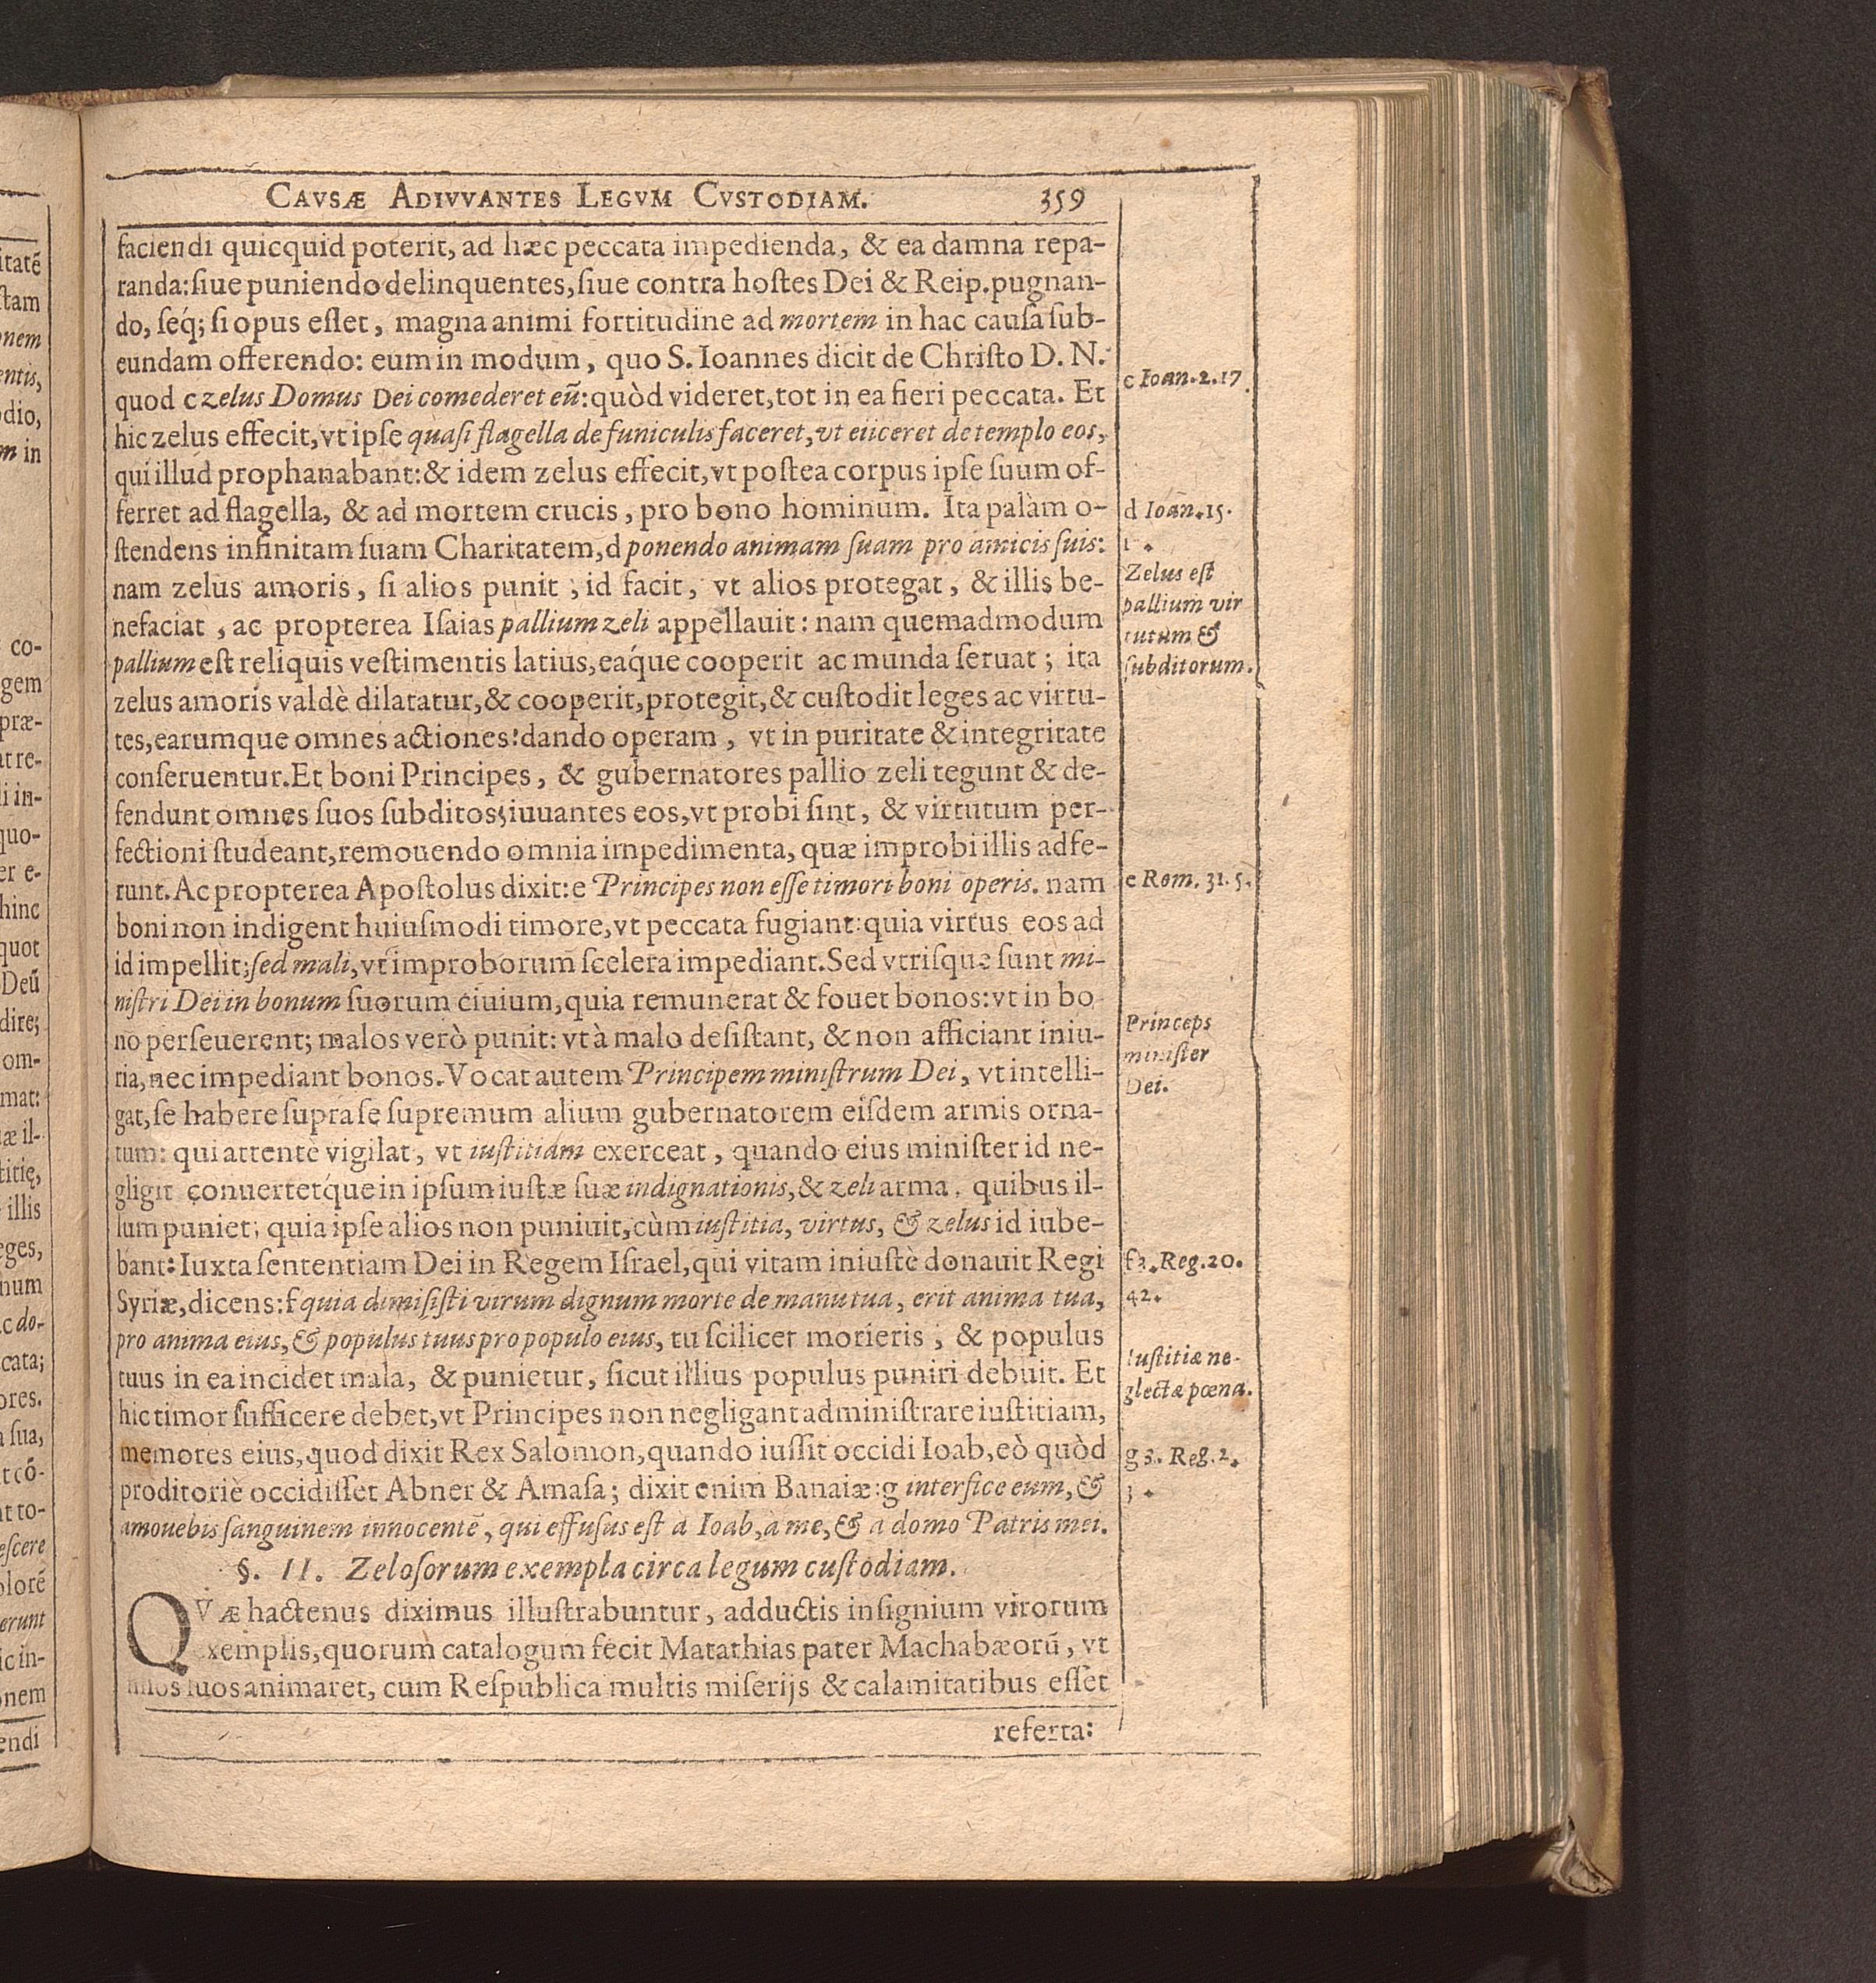 CAVSÆ ADIVVANTES LEGVM CVSTODIAM. 359
faciendi quicquid poterit, ad hæc peccata impedienda, & ea damna repa-
randa: ſiue puniendo delinquentes, ſiue contra hoſtes Dei & Reip. pugnan-
do, ſeq́; ſi opus eſſet, magna animi fortitudine ad mortem in hac cauſa ſub-
eundam offerendo: eum in modum, quo S. Ioannes dicit de Chriſto D. N.
quod c zelus Domus Dei comederet eũ: quòd videret, tot in ea fieri peccata. Et
hic zelus effecit, vt ipſe quaſi flagella de funiculis faceret, vt eiiceret de templo eos,
qui illud prophanabant: & idem zelus effecit, vt poſtea corpus ipſe ſuum of-
ferret ad flagella, & ad mortem crucis, pro bono hominum. Ita palàm o-
ſtendens infinitam ſuam Charitatem, d ponendo animam ſuam pro amicis ſuis:
nam zelus amoris, ſi alios punit; id facit, vt alios protegat, & illis be-
nefaciat, ac propterea Iſaias pallium zeli appellauit: nam quemadmodum
pallium eſt reliquis veſtimentis latius, eaq́ue cooperit ac munda ſeruat; ita
zelus amoris valdè dilatatur, & cooperit, protegit, & cuſtodit leges ac virtu-
tes, earumque omnes actiones: dando operam, vt in puritate & integritate
conſeruentur. Et boni Principes, & gubernatores pallio zeli tegunt & de-
fendunt omnes ſuos ſubditos; iuuantes eos, vt probi ſint, & virtutum per-
fectioni ſtudeant, remouendo omnia impedimenta, quæ improbi illis adfe-
runt. Ac propterea Apoſtolus dixit: e Principes non eſſe timori boni operis. nam
boni non indigent huiuſmodi timore, vt peccata fugiant: quia virtus eos ad
id impellit; ſed mali, vt improborum ſcelera impediant. Sed vtriſque ſunt mi-
niſtri Dei in bonum ſuorum ciuium, quia remunerat & fouet bonos: vt in bo
no perſeuerent; malos verò punit: vt à malo deſiſtant, & non afficiant iniu-
ria, nec impediant bonos. Vocat autem Principem miniſtrum Dei, vt intelli-
gat, ſe habere ſupra ſe ſupremum alium gubernatorem eiſdem armis orna-
tum: qui attente vigilat, vt iuſtitiam exerceat, quando eius miniſter id ne-
gligit conuertetq́ue in ipſum iuſtæ ſuæ indignationis, & zeli arma, quibus il-
lum puniet; quia ipſe alios non puniuit, cùm iuſtitia, virtus, & zelus id iube-
bant: Iuxta ſententiam Dei in Regem Iſrael, qui vitam iniuſtè donauit Regi
Syriæ, dicens: f quia dimiſiſti virum dignum morte de manu tua, erit anima tua,
pro anima eius, & populus tuus pro populo eius, tu ſcilicet morieris, & populus
tuus in ea incidet mala, & punietur, ſicut illius populus puniri debuit. Et
hic timor ſufficere debet, vt Principes non negligant adminiſtrare iuſtitiam,
memores eius, quod dixit Rex Salomon, quando iuſſit occidi Ioab, eò quòd
proditoriè occidiſſet Abner & Amaſa; dixit enim Banaiæ: g interfice eum, &
amouebis ſanguinem innocentẽ, qui effuſus eſt a Ioab, a me, & a domo Patris mei.
§. II. Zeloſorum exempla circa legum cuſtodiam.
QVæ hactenus diximus illuſtrabuntur, adductis inſignium virorum
exemplis, quorum catalogum fecit Matathias pater Machabæorũ, vt
filios ſuos animaret, cum Reſpublica multis miſerijs & calamitatibus eſſet
referta:
c Ioan. 2. 17.
d Ioan. 15.
Zelus eſt
pallium vir
tutum &
ſubditorum.
e Rom. 31. 5.
Princeps
miniſter
Dei.
Reg. 20.
42.
Iuſtitiæ ne-
glectæ pœna.
g 3. Reg. 2.
itatẽ
ſtam
onem
entis,
odio,
m in
co-
gem
præ-
at re-
li in-
quo-
er e-
hinc
quot
Deũ
dire;
om-
mat:
æ il-
titię,
illis
eges,
num
c do-
cata;
ores.
a ſua,
t cõ-
at to-
eſcere
olorẽ
erunt
ic in-
onem
endi